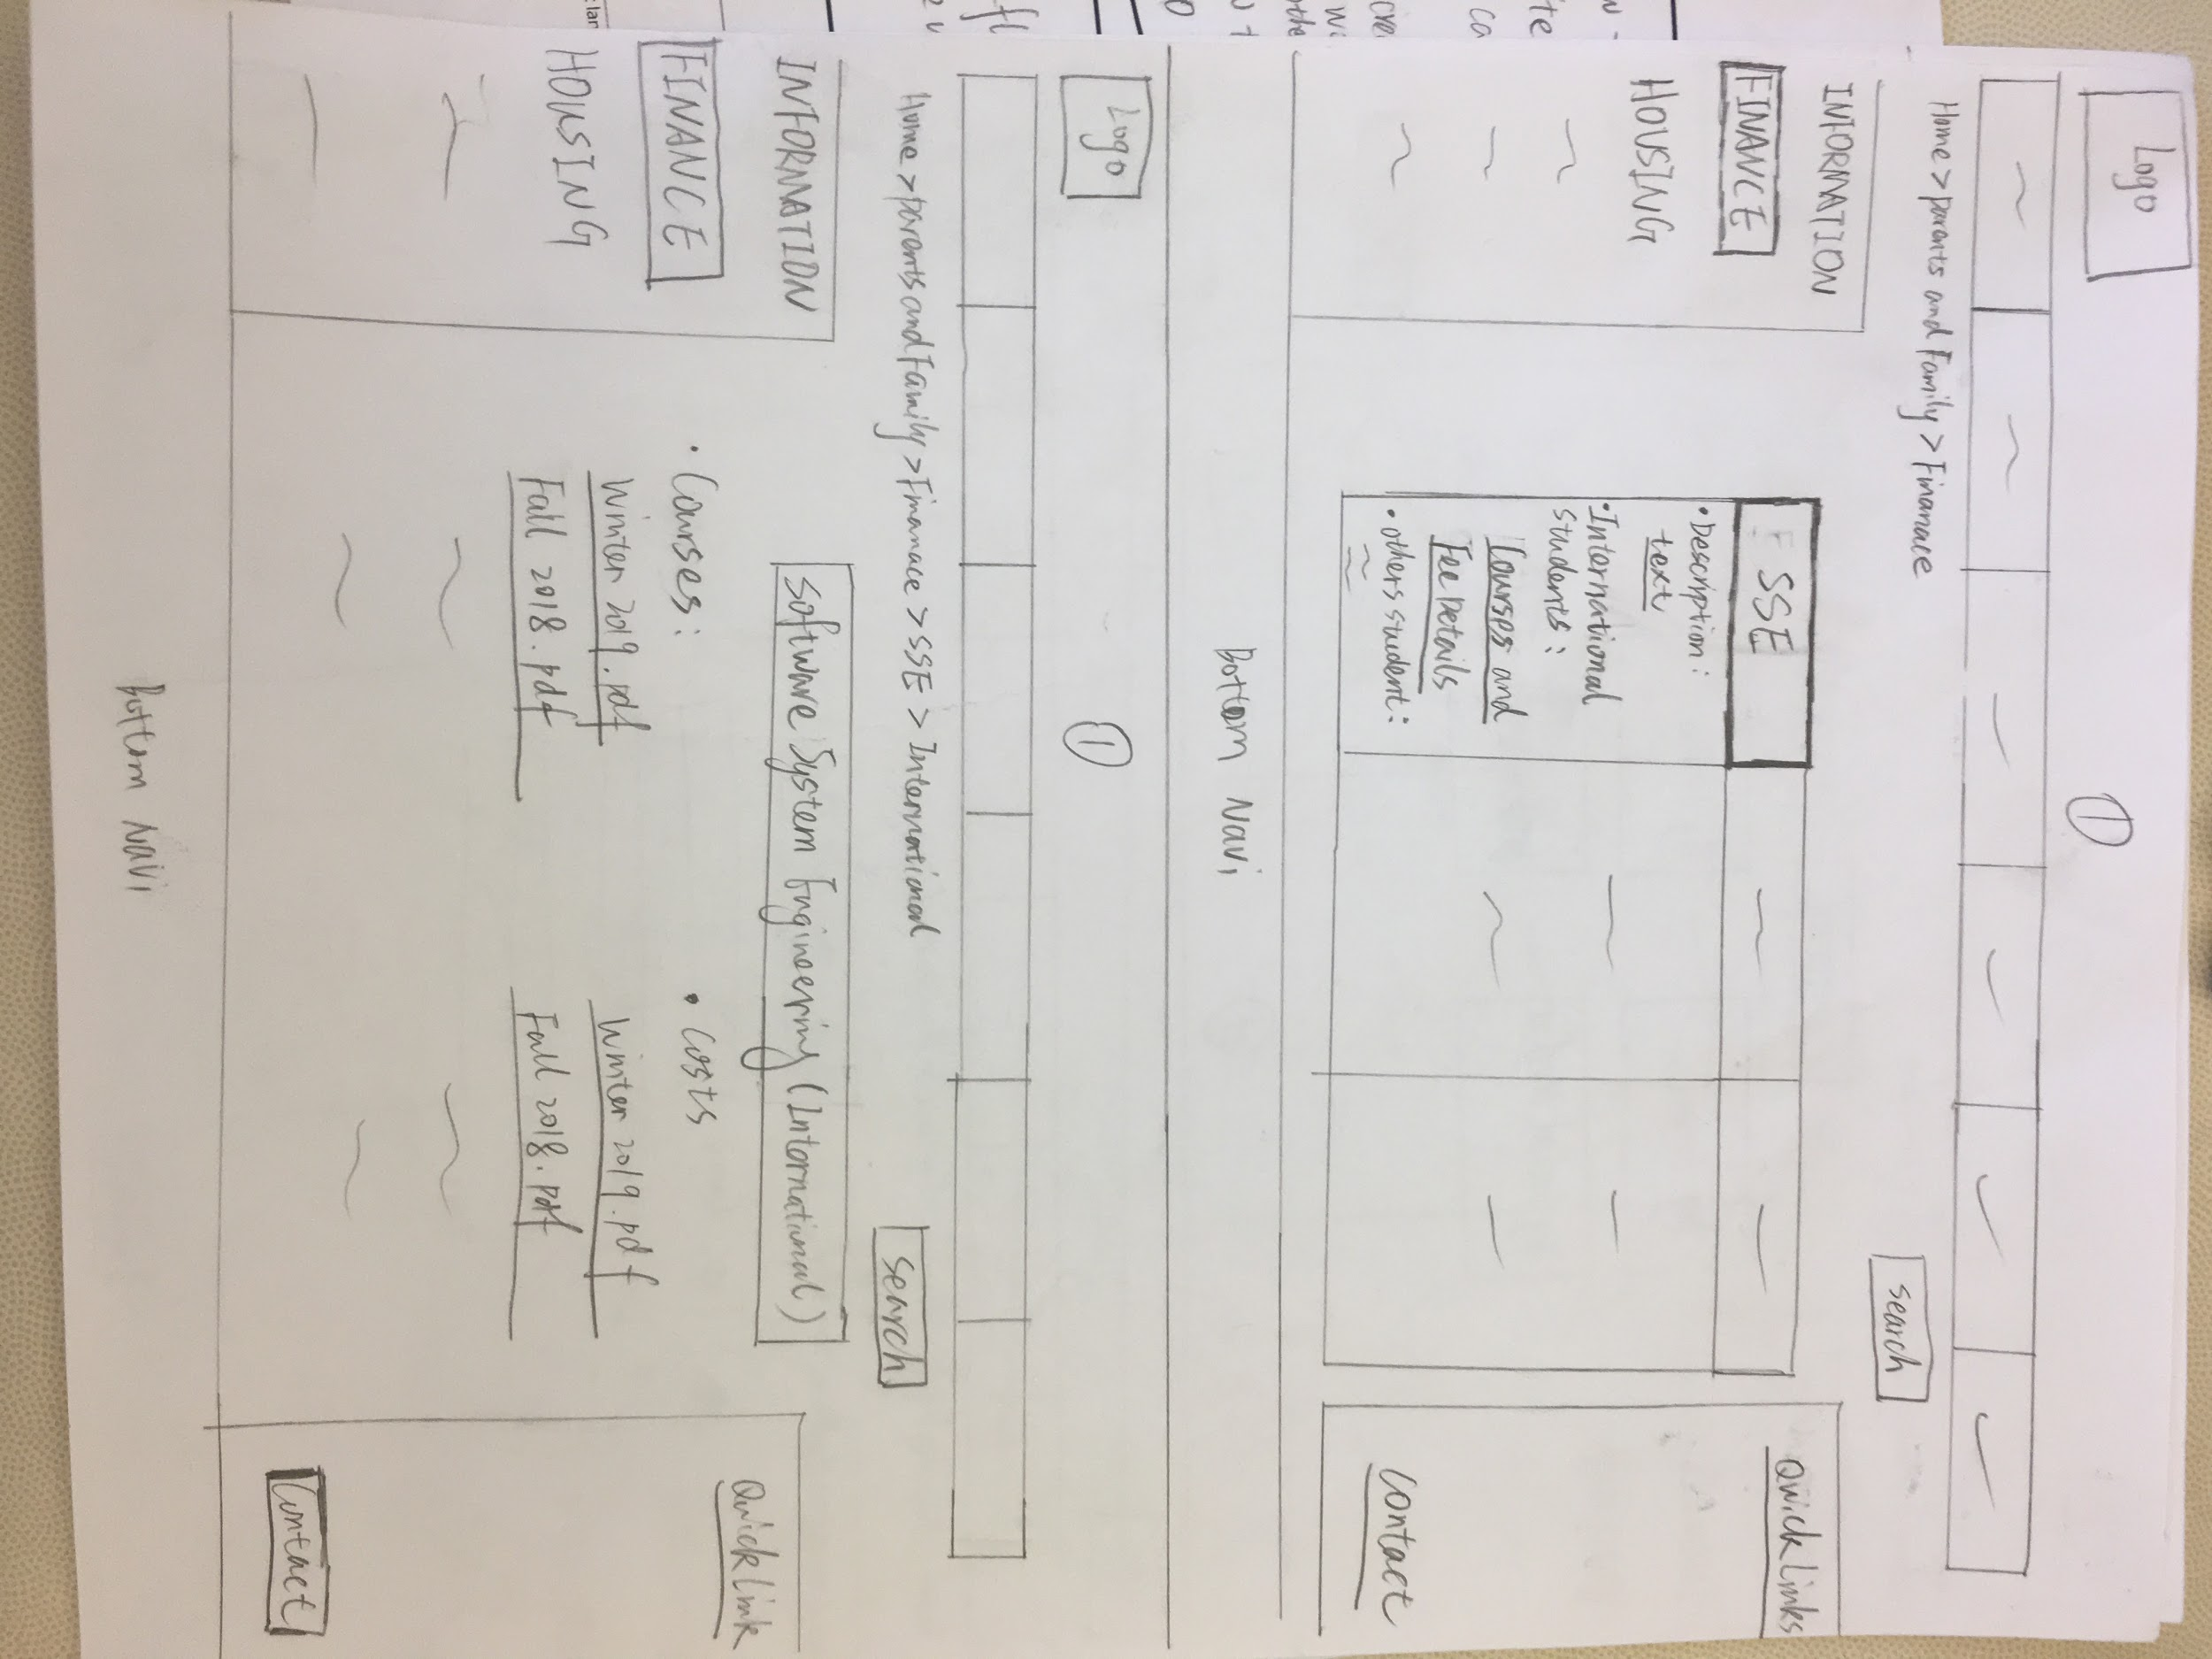 Logo
①
Home > parents and Family > Finanace
search
INFORMATION
FINANCE
HOUSING
SSE
• Description:
text
• International
students:
Courses and
Fee Details
• others student:
Quick links
contact
Bottom Navi
Logo
①
Home > parents and Family > Finanace > SSE > International
search
INFORMATION
FINANCE
HOUSING
Software System Engineering (International)
• Courses:
Winter 2019.pdf
Fall 2018.pdf
• Costs
Winter 2019.pdf
Fall 2018.pdf
Quick link
Contact
Bottom Navi